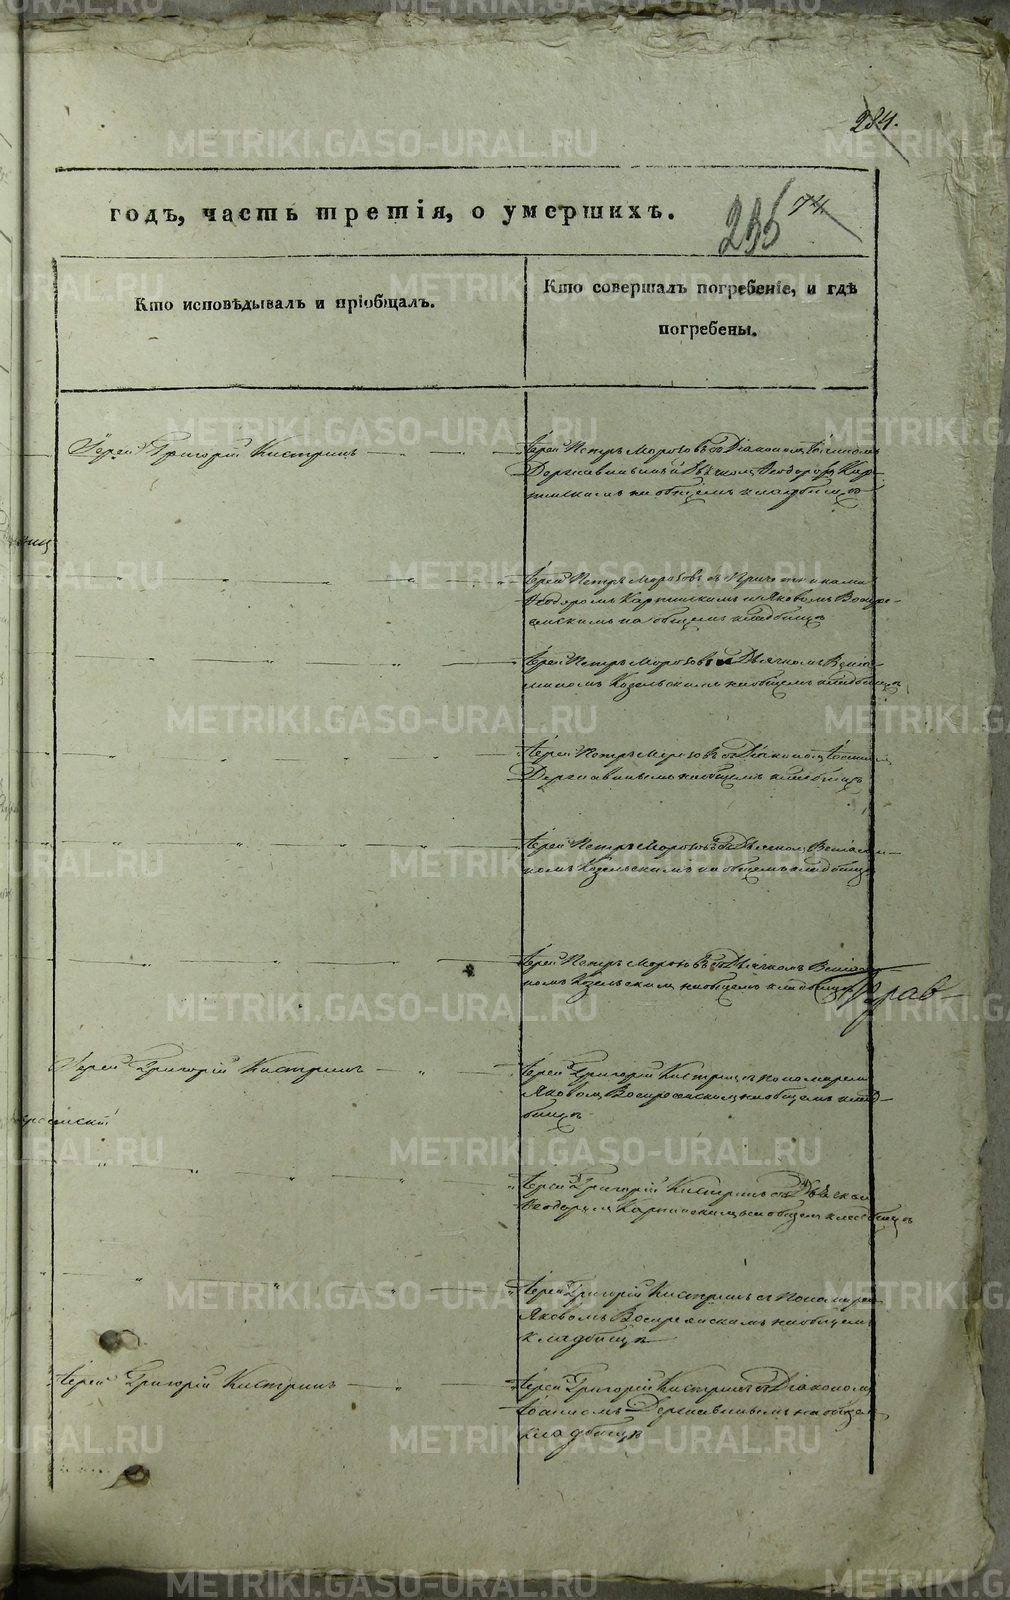 284.
годъ, часть третія, о умершихъ.
74
Кто исповѣдывалъ и пріобщалъ.
Кто совершалъ погребеніе, и гдѣ
погребены.
Іерей Григорій Кистринъ
Іерей Петръ Морозовъ съ Діакономъ
Державинымъ и Дьячкомъ Ѳеодоромъ
на общемъ кладбищѣ
Іерей Петръ Морозовъ съ Причетниками
Ѳеодоромъ Карпинскимъ и Яковомъ Воскре-
сенскимъ на общемъ кладбищѣ
Іерей Петръ Морозовъ съ Дьячкомъ Веніа-
миномъ Козельскимъ на общемъ кладбищѣ
Іерей Петръ Морозовъ съ Діакономъ
Державинымъ на общемъ кладбищѣ
Іерей Петръ Морозовъ съ Дьячкомъ Веніами-
номъ Козельскимъ на общемъ кладбищѣ
Іерей Петръ Морозовъ съ Дьячкомъ Веніами-
номъ Козельскимъ на общемъ кладбищѣ
Іерей Григорій Кистринъ
Іерей Григорій Кистринъ съ пономаремъ
Яковомъ Воскресенскимъ на общемъ клад-
бищѣ
Іерей Григорій Кистринъ съ Дьячкомъ
Ѳеодоромъ Карпинскимъ на общемъ кладбищѣ
Іерей Григорій Кистринъ съ Пономаремъ
Яковомъ Воскресенскимъ на общемъ
кладбищѣ
Іерей Григорій Кистринъ
Іерей Григорій Кистринъ съ Діакономъ
Іоанномъ Державинымъ на общемъ
кладбищѣ
METRIKI.GASO-URAL.RU